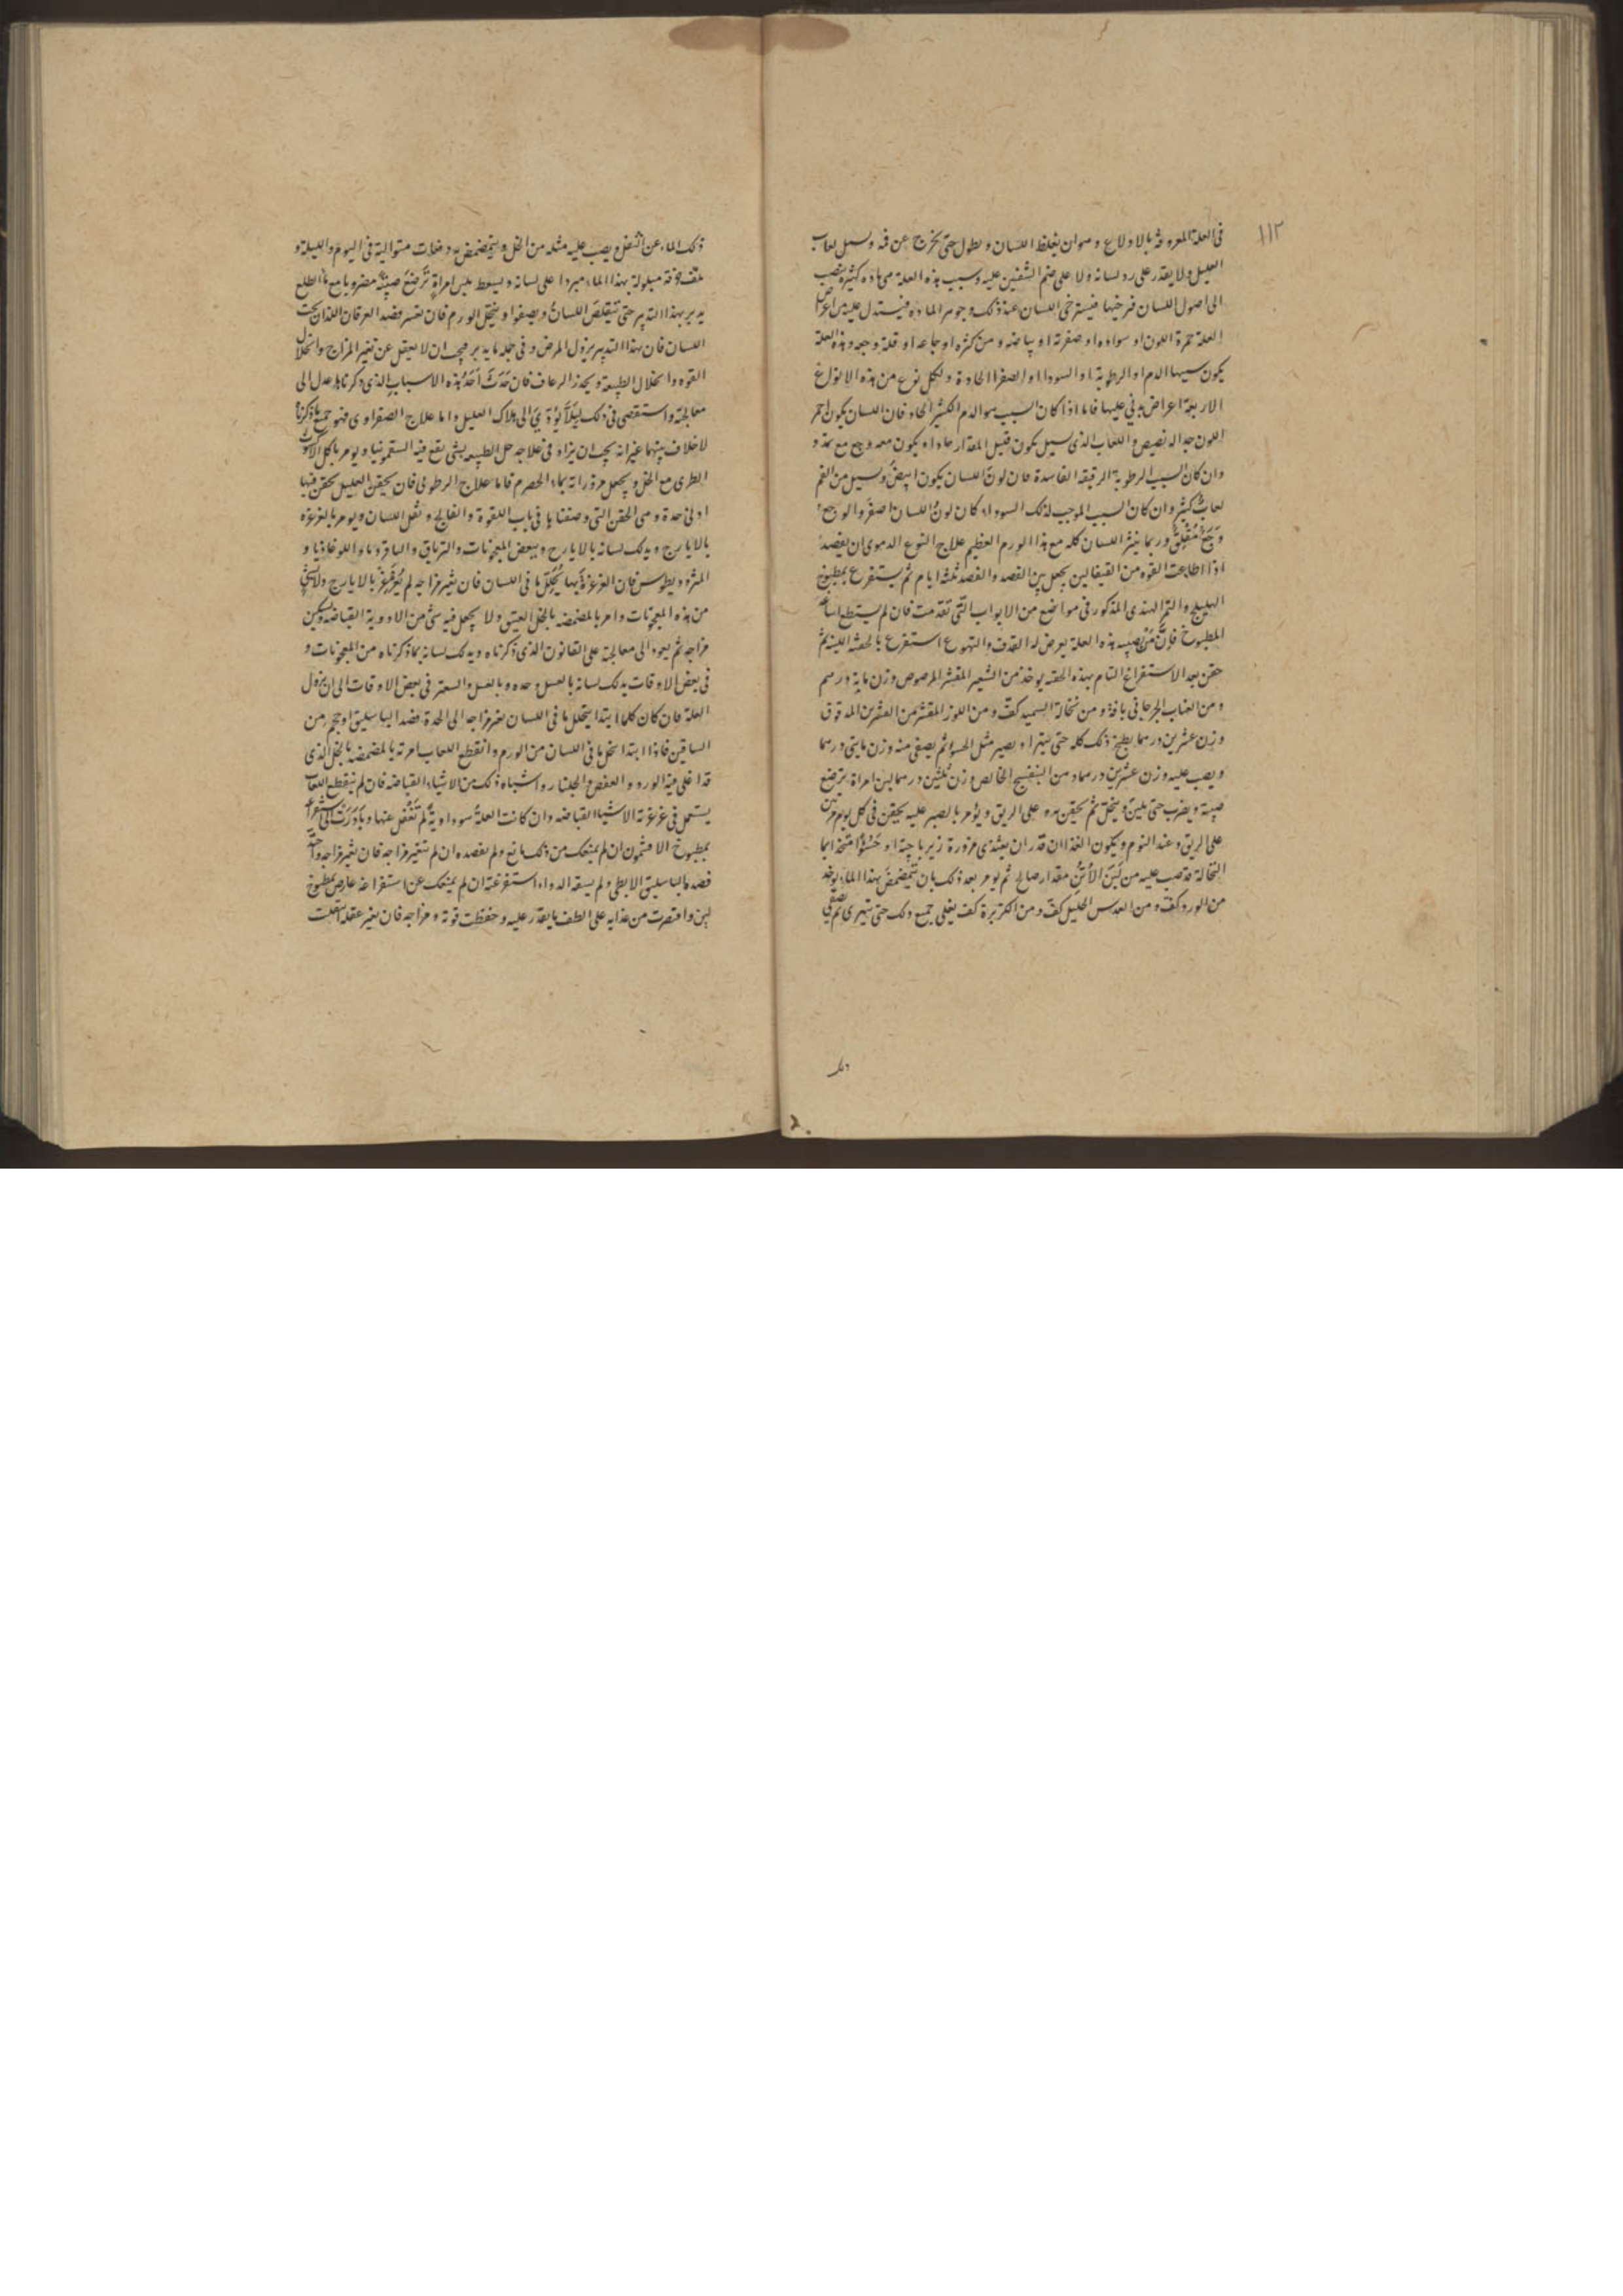 ١١٢
في العلة المعروفة بالاولاع وهو ان يغلظ اللسان ويطول حتى يخرج عن فمه ويسيل لعاب
العليل ولا يقدر على رد لسانه ولا على ضم الشفتين عليه وسبب هذه العلة هي مادة كثيرة تنصب
الى اصول اللسان فترخيها فيسترخى اللسان عند ذلك وجوهر المادة فيستدل عليه من اعراض
العلة حمرة اللون او سواده او صفرته او بياضه ومن كثرة اوجاعه او قلة وجعه وهذه العلة
يكون سببها الدم او الرطوبة او السودا او الصفرا الحادة ولكل نوع من هذه الانواع
الاربعة اعراض يدل عليها فاما اذا كان السبب هو الدم الكثير الحاد فان اللسان يكون احمر
اللون جدا واللعاب الذي يسيل يكون قليل المقدار حادا ويكون معه وجع مع تمدد
وان كان السبب الرطوبة الرقيقة الفاسدة فان لون اللسان يكون ابيض ويسيل من الفم
لعاب كثير وان كان السبب الموجب لذلك السودا، كان لون اللسان اصفر والوجع
وجع مقلق وربما ينثر اللسان كله مع هذا الورم العظيم علاج النوع الدموى ان يفصد
اذا اطاعت القوه من القيفالين يجعل بين الفصد والفصد ثلثة ايام ثم يستفرغ بمطبوخ
الهليلج والتمر الهندى المذكور في مواضع من الابواب التى تقدمت فان لم يستطع اساغة
المطبوخ فان من يصيبه هذه العلة يعرض له القذف والتهوع استفرغ بالحقنة اللينة ثم
حقن بعد الاستفراغ التام بهذه الحقنه يوخذ من الشعير المقشر المرضوض وزن ماية درهم
ومن العناب الجرجانى باقة ومن نخالة السميد كف ومن اللوز المقشر من القشرين المدقوق
وزن عشرين درهما يطبخ ذلك كله حتى يتهرا ويصير مثل الحسو ثم يصفى منه وزن مايتى درهما
ويصب عليه وزن عشرين درهما دهن البنفسج الخالص وزن ثلثين درهما لبن امراة ترضع
صبية ويضرب حتى يلين ويختلط ثم يحقن به على الريق ويؤمر بالصبر عليه يحقن في كل يوم مرتين
على الريق وعند النوم ويكون الغذا ان قدر ان يغتذى مزورة زيرباجة او حسوا متخذا بما
النخالة قد صب عليه من لبن الاتن مقدار صالح ثم يومر بعد ذلك بان يتمضمض بهذا الماء يوخذ
من الورد كف ومن العدس الجليل كف ومن الكزبرة كف يغلى جميع ذلك حتى يتهرى ثم يصفى
ذلك
ذلك الماء عن الثفل ويصب عليه مثله من الخل ويتمضمض به دفعات متوالية في اليوم والليلة و
خرقة مبلولة بهذا الماء مبردا على لسانه ويسعط بلبن امراة ترضع صبية مضروبا مع ماء الطلع
يدبر بهذا التدبير حتى يتقلص اللسان ويصغر او يتحلل الورم فان تعسر فصد العرقان اللذان تحت
اللسان فان بهذا التدبير يزول المرض وفي جملة ما يدبر يجب ان لا يغفل عن تغير المزاج وانحلال
القوه وانحلال الطبيعة ويحذر الرعاف فان حدث احد هذه الاسباب الذي ذكرناها عدل الى
معالجته واستقصى في ذلك ليلا يؤدي الى هلاك العليل واما علاج الصفراوى فهو جميع ما ذكرناه
لا خلاف بينهما غير انه يجب ان يزاد في علاجه حل الطبيعه بشى يقع فيه السقمونيا ويومر باكل
الطرى مع الخل ويجعل مزوراته بماء الحصرم فاما علاج الرطوبى فان يحقن العليل بحقن فيها
ادنى حدة وهى الحقن التى وصفناها في باب اللقوة والفالج وثقل اللسان ويومر بالغرغره
بالايارج ويدلك لسانه بالايارج وببعض المعجونات والترياق والشافروناء واللوغاذيا و
المثروديطوس فان الغرغرة بها يحلل ما في اللسان فان تغير مزاجه لم يغرغر بالايارج ولا بشئ
من هذه المعجونات وامر بالمضمضه بالخل العتيق ولا يجعل فيه شئ من الادوية القباضه ليسكن
مزاجه ثم يعود الى معالجته على القانون الذى ذكرناه ويدلك لسانه بما ذكرناه من المعجونات و
في بعض الاوقات يدلك لسانه بالعسل وحده وبالعسل والسعتر في بعض الاوقات الى ان يزول
العلة فان كان كلما ابتدا يتحلل ما في اللسان تغير مزاجه الى الحدة فصد الباسليق او حجم من
الساقين فاذا ابتدا ينحل ما في اللسان من الورم وانقطع اللعاب امرته بالمضمضه بالخل الذى
قد اغلى فيه الورد والعفص والجلنار واشباه ذلك من الاشياء القباضه فان لم ينقطع اللعاب
يستعمل في غرغرته الاشيا القباضه وان كانت العلة سوداوية لم تغفل عنها وبادرت الى استفراغه
بمطبوخ الافتيمون ان لم يمنعك من ذلك مانع ولم تفصده ان لم يتغير مزاجه فان تغير مزاجه واحتد
فصد الباسليق الابطى ولم يسقه الدواء، استفرغته ان لم يمنعك عن استفراغه عارض بمطبوخ
لين واقتصرت من غذايه على الطف ما يقدر عليه وحفظت قوته ومزاجه فان تغير عقله انتقلت